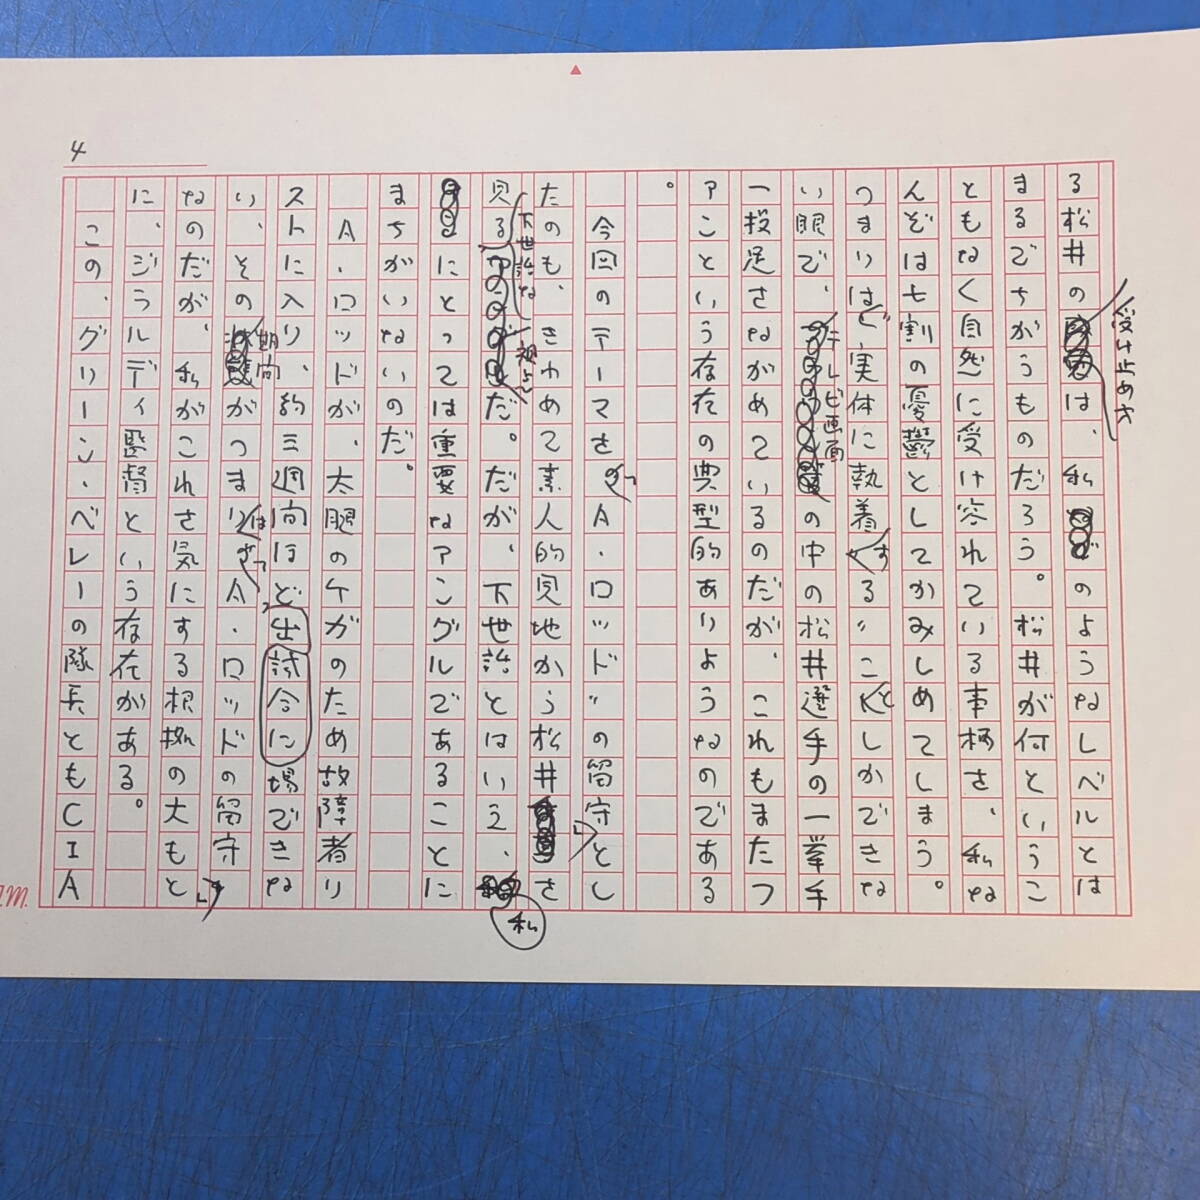 4
る松井の受け止め方は、私のようなレベルとは
まるでちがうものだろう。松井が何というこ
ともなく自然に受け容れている事柄を、私な
んぞは七割の憂鬱としてかみしめてしまう。
つまりは、実体に執着することしかできな
い眼で、テレビ画面の中の松井選手の一挙手
一投足をながめているのだが、これもまたフ
ァンという存在の典型的ありようなのである
。
今回のテーマを〝A・ロッド〟の留守とし
たのも、きわめて素人的見地から松井を
見る下世話な視点だ。だが、下世話とはいえ、私
にとっては重要なアングルであることに
まちがいないのだ。
A・ロッドが、太腿のケガのため故障者リ
ストに入り、約三週間ほど試合に出場できな
い、その期間がつまりはA・ロッドの留守
なのだが、私がこれを気にする根拠の大もと
に、ジラルディ監督という存在がある。
この、グリーン・ベレーの隊長ともCIA